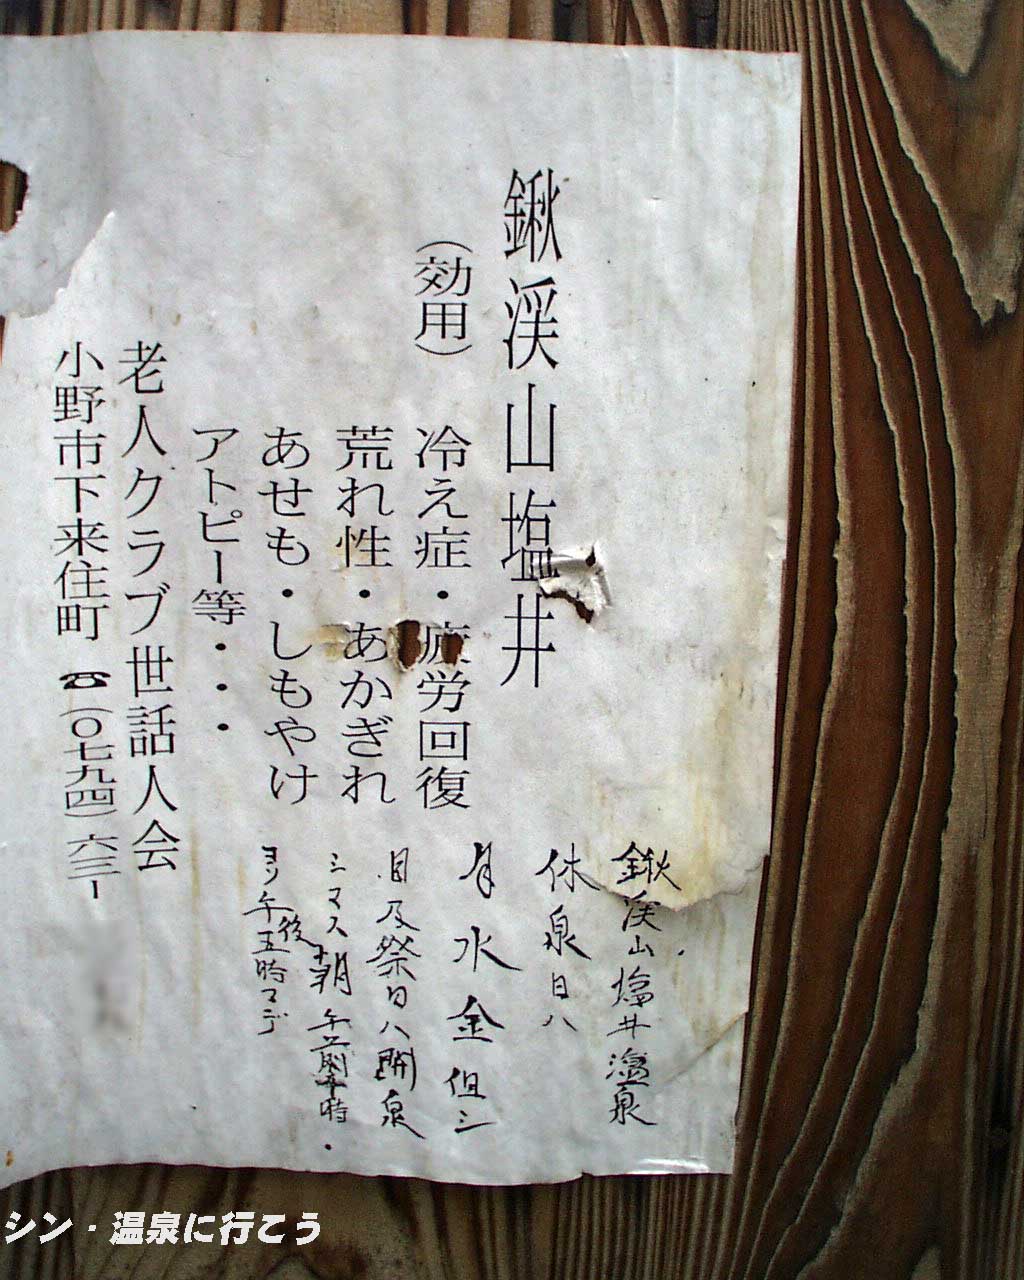 鍬渓山塩井
(効用)
冷え症・疲労回復
荒れ性・あかぎれ
あせも・しもやけ
アトピー等・・・
老人クラブ世話人会
小野市下来住町 ☎(〇七九四)六三ー
鍬渓山塩井温泉
休泉日ハ
月水金但シ
目及祭日ハ開泉
シマス 朔 午前 時・
ヨリ午後五時マデ
シン・温泉に行こう